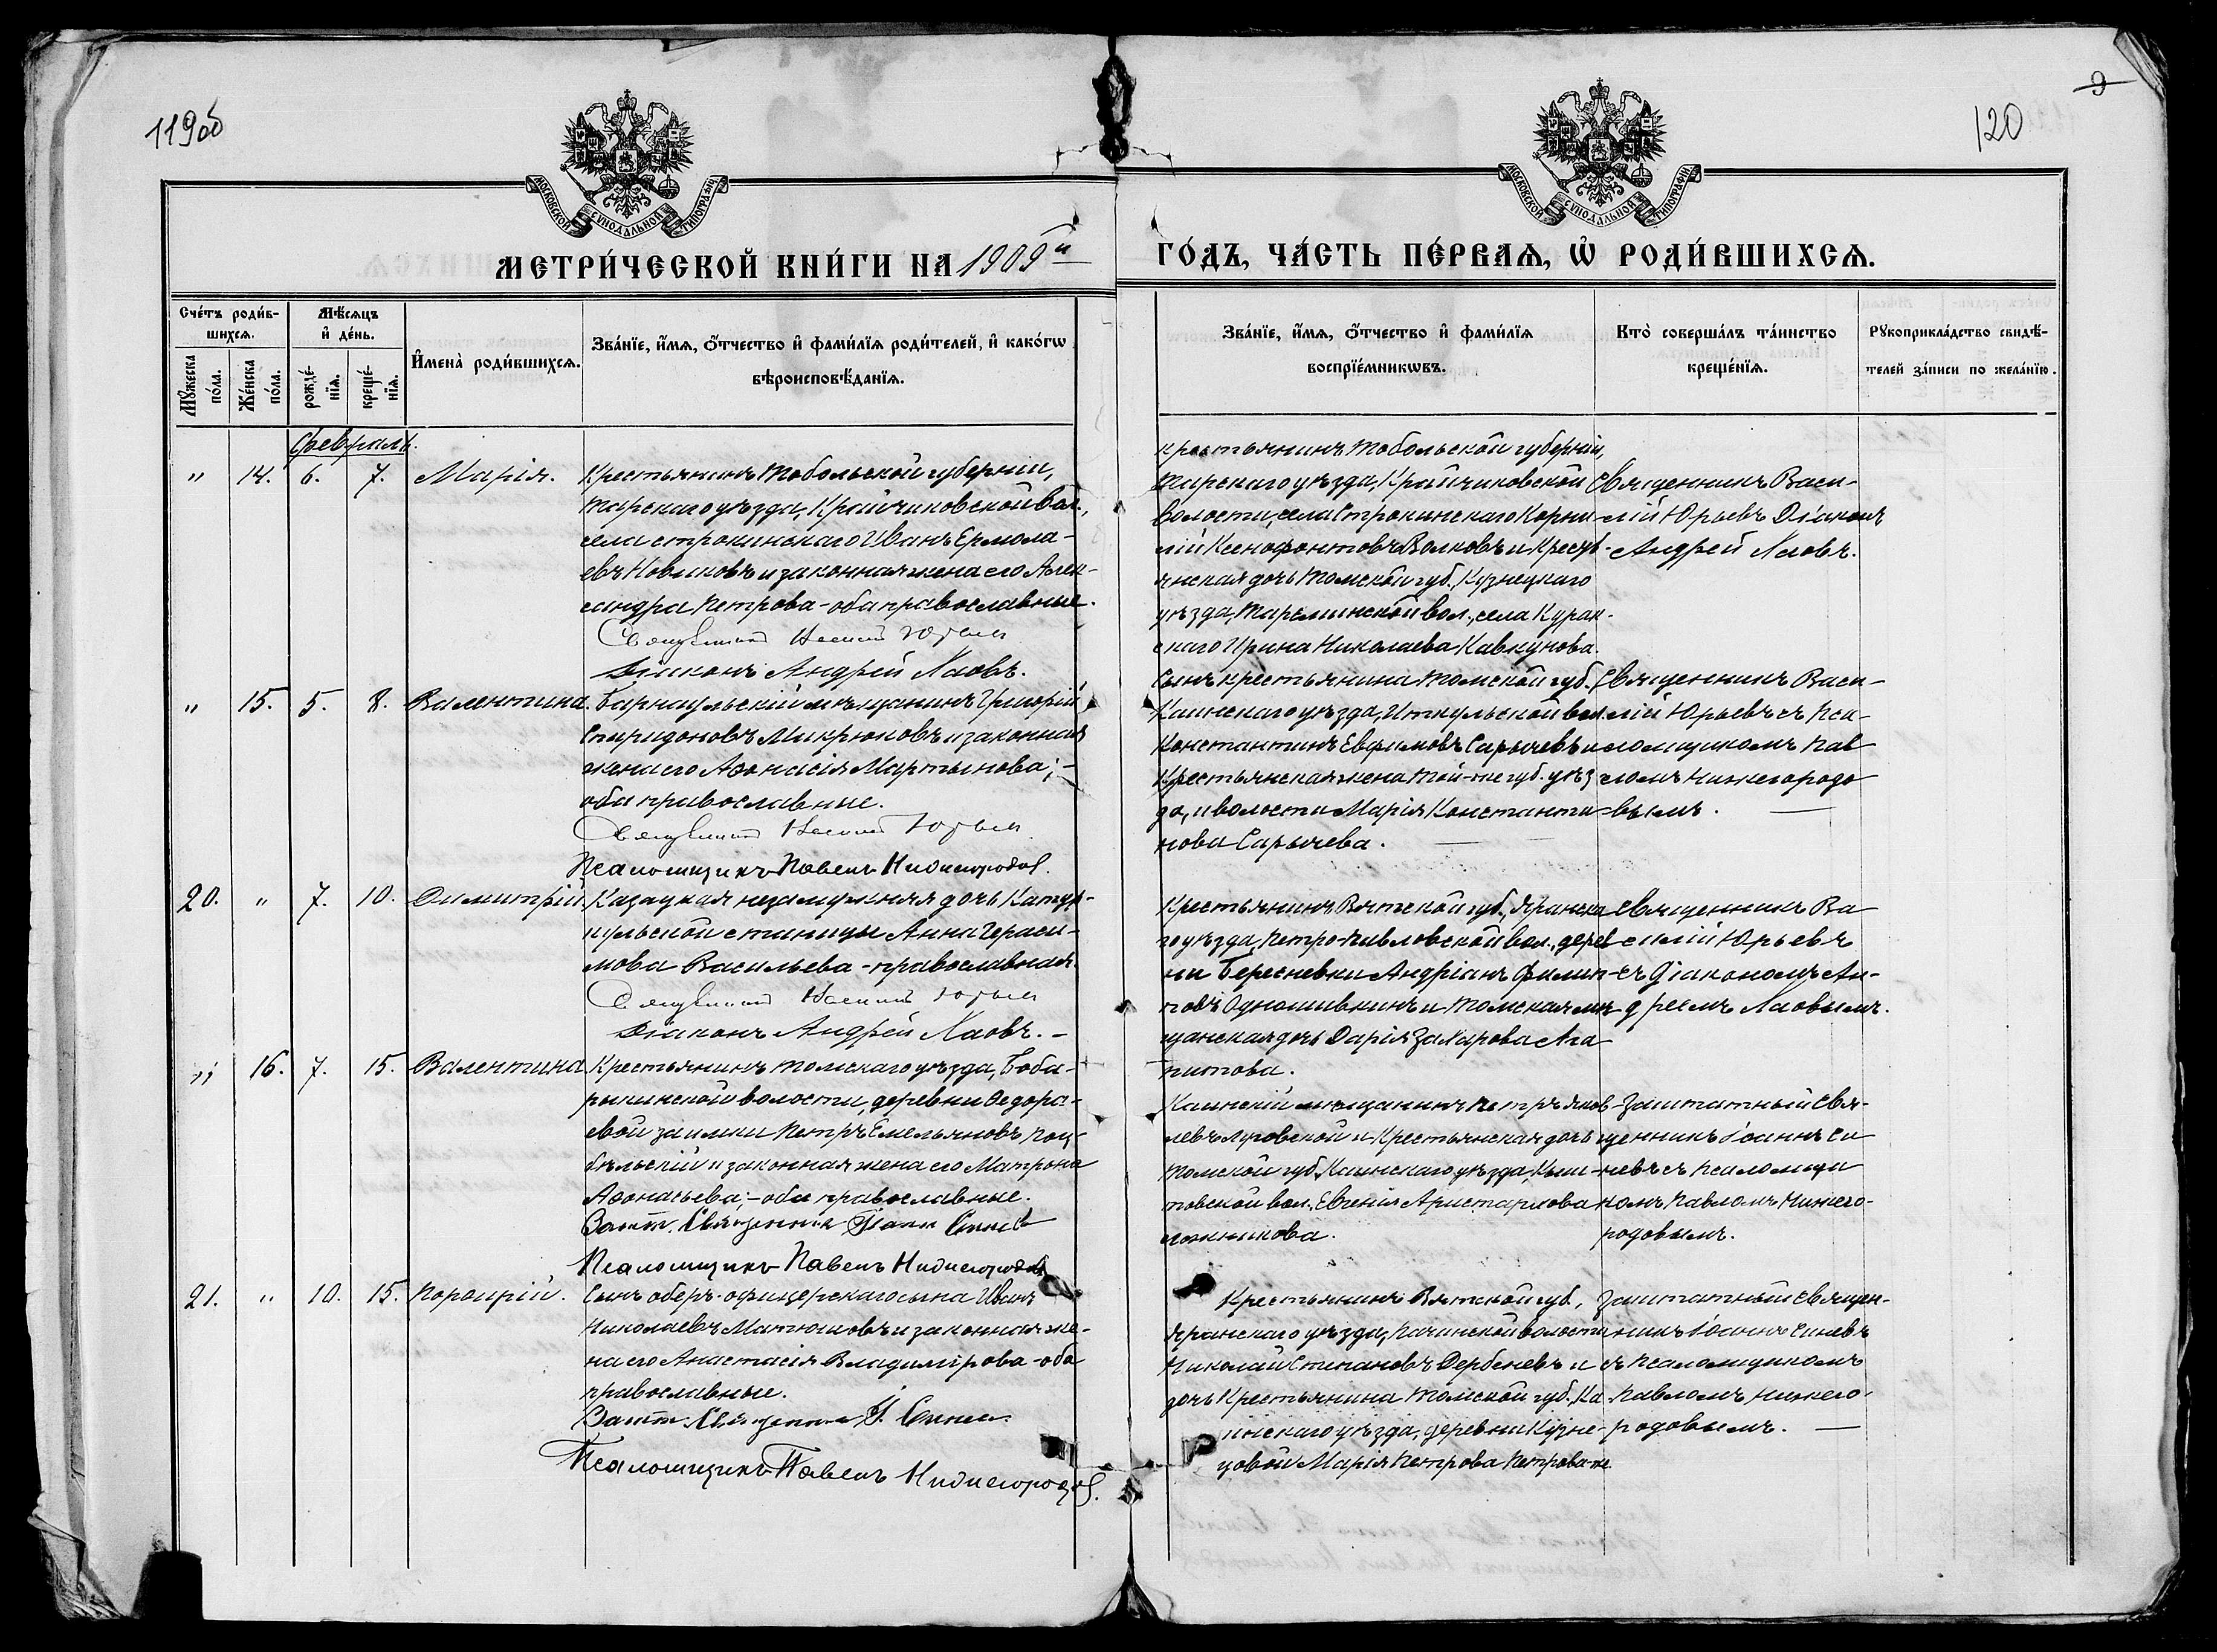 119об
120
9
МОСКОВСКОЙ СѴНОДАЛЬНОЙ ТИПОГРАФІИ
МОСКОВСКОЙ СѴНОДАЛЬНОЙ ТИПОГРАФІИ
МЕТРИ́ЧЕСКОЙ КНИ́ГИ НА 1909й
ГО́ДЪ, ЧА́СТЬ ПЕ́РВАѦ, Ѡ҆ РОДИ́ВШИХСѦ.
Сче́тъ роди́в-
шихсѧ.
Мꙋжеска по́ла.
Же́нска по́ла.
Мѣ́сѧцъ
и҆ де́нь.
рожде́-
нїѧ.
креще́-
нїѧ.
И҆мена̀ роди́вшихсѧ.
Зва́нїе, и҆́мѧ, ѻ҆́тчество и҆ фами́лїѧ роди́телей, и҆ како́гѡ
вѣроисповѣ́данїѧ.
Зва́нїе, и҆́мѧ, ѻ҆́тчество и҆ фами́лїѧ
воспрїе́мникѡвъ.
Кто̀ соверша́лъ та́инство
креще́нїѧ.
Рꙋкоприкла́дство свидѣ́-
телей за́писи по жела́нїю.
Февраль.
" 14. 6. 7. Марія.
Крестьянинъ Тобольской губерніи,
Тарскаго уѣзда, Крайчиковской вол.,
села Строкинскаго Иванъ Ермола-
евъ Новиковъ и законная жена его Алек-
сандра Петрова - оба православные.
Священникъ Василій Юрьевъ
Діаконъ Андрей Лаовъ.
Крестьянинъ Тобольской губерніи,
Тарскаго уѣзда, Крайчиковской
волости, села Строкинскаго Корни-
лій Ксенофонтовъ Волковъ и Кресть-
янская дочь Томской губ., Кузнецкаго
уѣзда, вол., села Курак-
скаго Ирина Николаева Кавкунова.
Священникъ Васи-
лій Юрьевъ Діаконъ
Андрей Лаовъ.
" 15. 5. 8. Валентина.
Барнаульскій мѣщанинъ Григорій
Спиридоновъ Микрюковъ и законная
жена его Аѳонасія Мартынова; -
оба православные.
Священникъ Василій Юрьевъ
Псаломщикъ Павелъ Нижегородов.
Сынъ крестьянина Томской губ.,
Каинскаго уѣзда, Иткульской вол.
Константинъ Евфимовъ Сарычевъ и
Крестьянская жена той-же губ. уѣз
да, и волости Марія Константи-
нова Сарычева.
Священникъ Васи-
лій Юрьевъ съ Пса-
ломщикомъ Пав
ломъ Нижегородо
вымъ.
20. " 7. 10. Димитрій
Казацкая незамужняя дочь
станицы Анна Гераси-
мова Васильева - православная.
Священникъ Василій Юрьевъ
Діаконъ Андрей Лаовъ. -
Крестьянинъ Вятской губ., Яранска
го уѣзда, Петро-Павловской вол., дерев
ни Бересневки Андріанъ Филип-
повъ Одношивкинъ и Томская мѣ-
щанская дочь Дарія Захарова Ага
питова.
Священникъ Ва
силій Юрьевъ
съ Діакономъ Ан-
дреемъ Лаовымъ.
" 16. 7. 15. Валентина
Крестьянинъ Томскаго уѣзда, Боба-
рыкинской волости, деревни Ѳедора-
евой заимки Петръ Емельяновъ Поц-
бѣльскій и законная жена его Матрона
Аѳонасьева; - оба православные.
Зашт. Священникъ Іоаннъ Синев
Псаломщикъ Павелъ Нижегородов
Каинскій мѣщанинъ Петръ Яков-
левъ и Крестьянская дочь
Томской губ., Каинскаго уѣзда, Кыш-
товской вол. Евгенія Аристархова
Заштатный Свя-
щенникъ Іоаннъ Си
невъ съ Псаломщи
комъ Павломъ Нижего-
родовымъ.
21. " 10. 15. Порѳирій.
Сынъ оберъ-офицерскаго сына Иванъ
Николаевъ Матюшовъ и законная же-
на его Анастасія Владимірова - оба
православные.
Зашт. Священник І. Синев.
Псаломщикъ Павелъ Нижегородов.
Крестьянинъ Вятской губ.,
Яранскаго уѣзда, Пачинской волости
Николай Степановъ Дербеневъ и
дочь Крестьянина Томской губ., Ка
инскаго уѣзда, деревни Кузне-
цовой Марія Петрова Петрова же
Заштатный Священ-
никъ Іоаннъ Синевъ
съ Псаломщикомъ
Павломъ Нижего-
родовымъ.